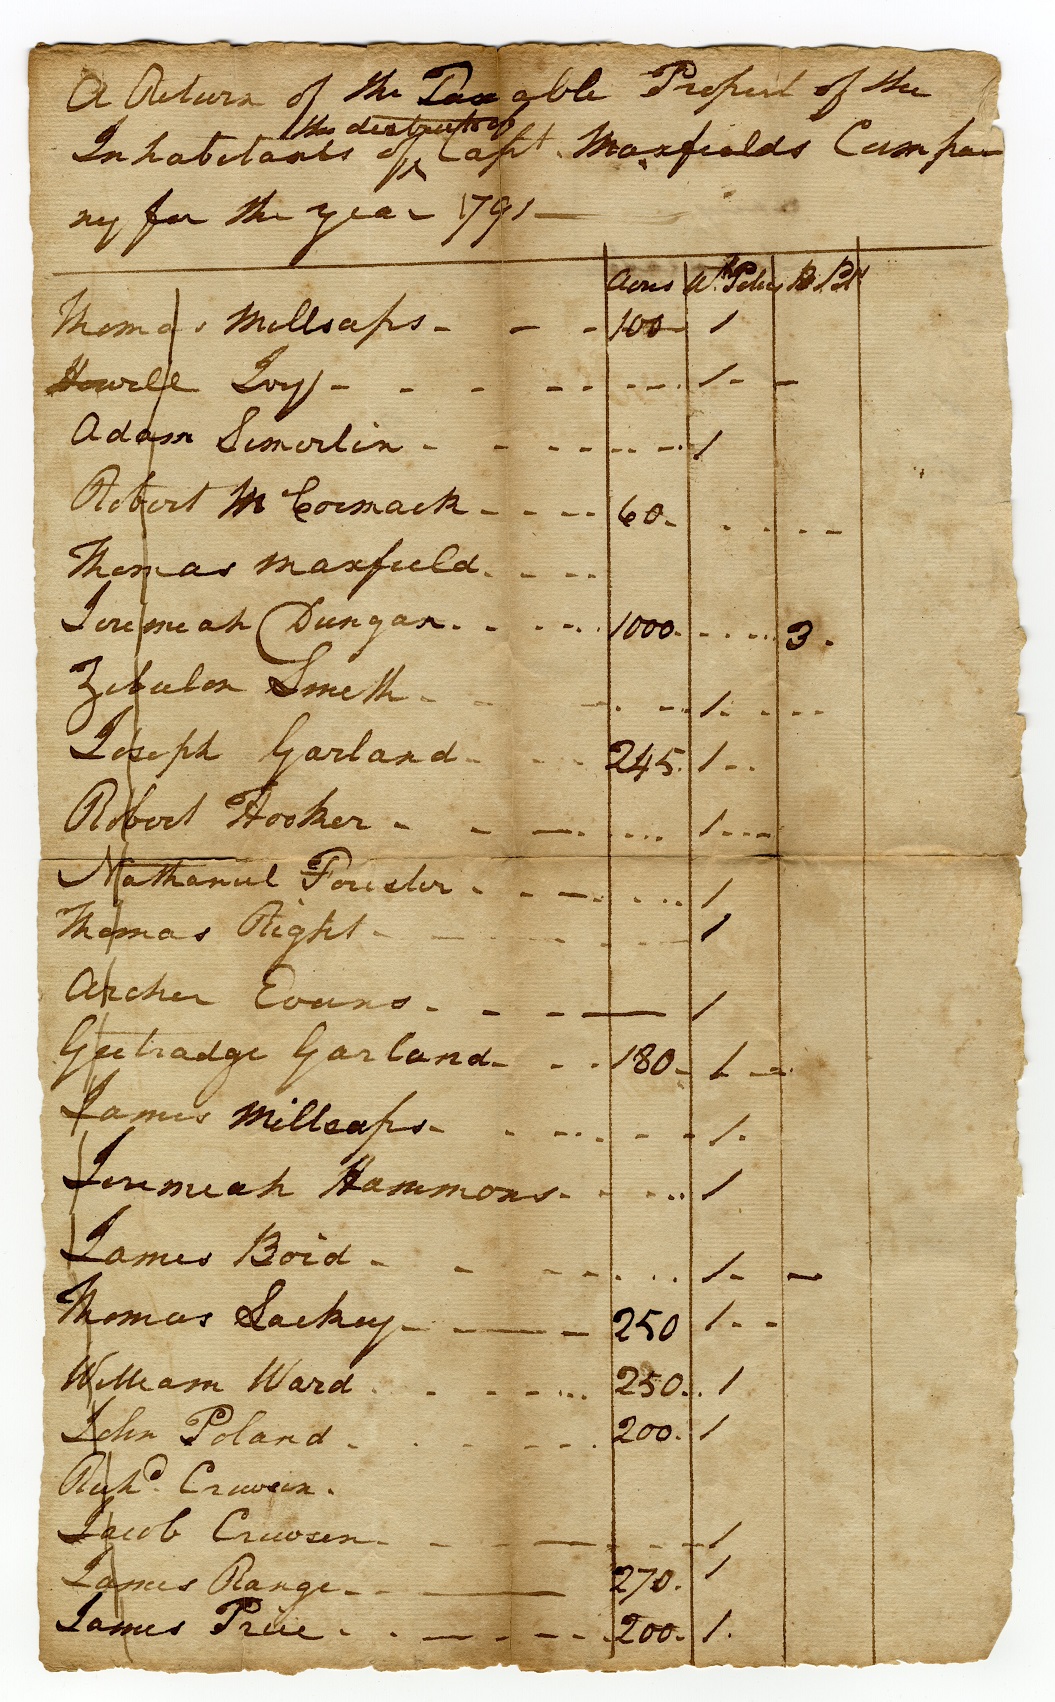 A Return of the Taxable Propert of the
the destrect of
Inhabetants of Capt. Maxfields Compa
ny for the year 1791
Acres Wh. Poles B Pol
Thomas Millsaps - - - 100 1
Howell Ivy - - - - 1 - -
Adam Semerlin - - - - 1
Robert McCormack - - - - 60 - - - -
Thomas Maxfield - - - -
Jeremeah Dungan - - - - 1000 - - - 3
Zebulon Smeth - - - - 1 - - -
Joseph Garland - - - 245 1 - -
Robert Hooker - - - - 1 - - -
Nathaniel Forester - - - - 1
Thomas Right - - - - 1
Archer Evans - - - - 1
Gutradge Garland - - - 180 - 1 - -
James Millsaps - - - - 1 -
Jeremeah Hammons - - - 1
James Boid - - - - 1 - -
Thomas Lackey - - - 250 1 - -
William Ward - - - - 250 1
John Poland - - - - 200 1
Richd. Crawsen
Jacob Crewsen - - - - 1
James Range - - - 270 1
James Price - - - - 200 1